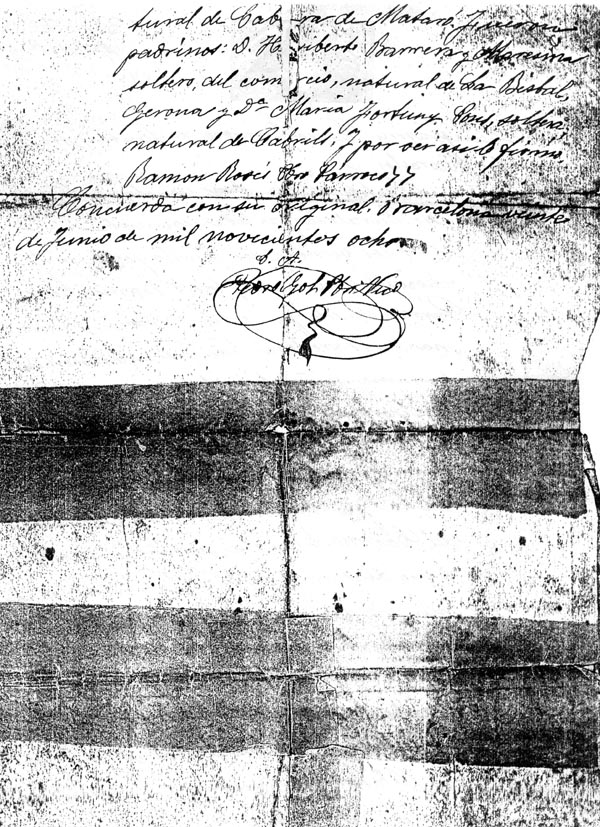 tural de Cabrera de Mataró, fueron
padrinos: D. Heriberto Barrera y
soltero, del comercio, natural de La Bisbal,
Gerona y Dª Maria Fortuny soltera,
natural de Cabrils. Y por ser así lo firmo.
Ramon Pbro Parroco "
Concuerda con su original. Barcelona veinte
de Junio de mil novecientos ocho